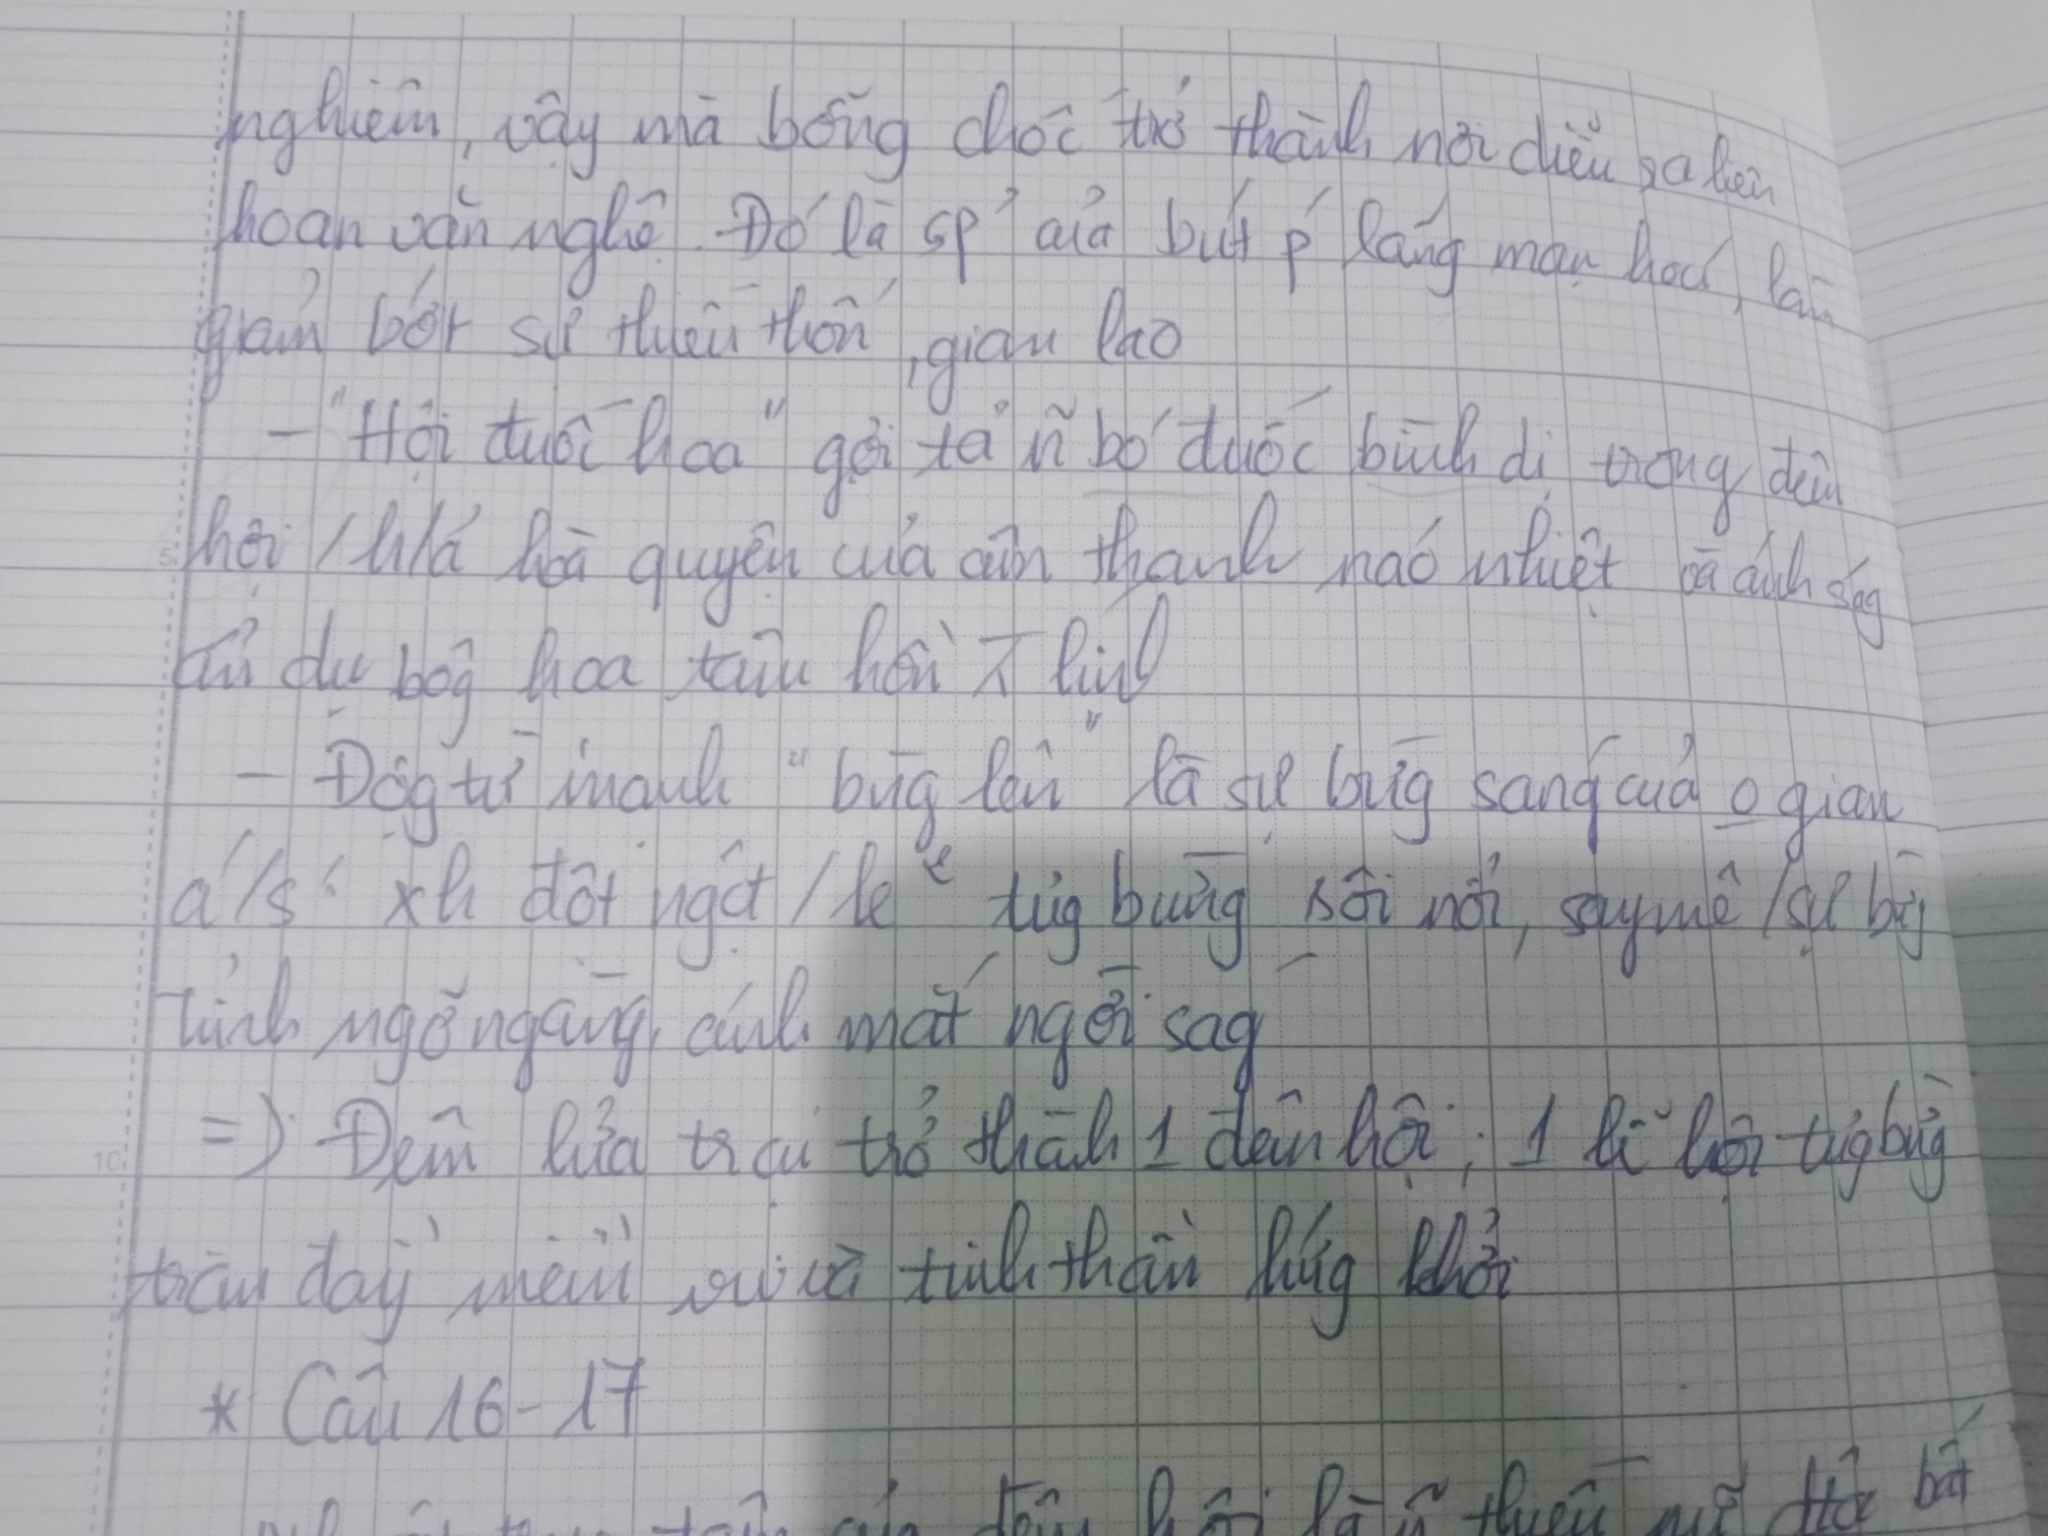 nghiêm, vậy mà bỗng chốc trở thành nơi diễn ra liên
hoan văn nghệ. Đó là sp của bút p' lãng mạn hoá, làm
giảm bớt sự thiếu thốn, gian lao
- "Hội đuốc hoa" gợi tả ~n bó đuốc bình dị trong đêm
hội / h/ả hoà quyện của âm thanh náo nhiệt và ánh ság
ẩn dụ bôg hoa tâm hồn lính
- Độg từ mạnh "bừg lên" là sự bừg sáng của o gian
a'/s' xh đột ngột / k e tưg bừng sôi nổi, say mê / sự bừg
tỉnh ngỡ ngàng, ánh mắt ngời ság
=) Đêm lửa trại trở thành 1 đêm hội, 1 lễ hội tưg bừg
tràn đầy niềm vui và tinh thần hứg khởi
* Câu 16-17
đêm hội là ~n thiếu nữ